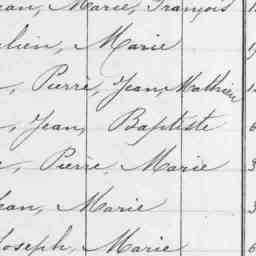 ean, Marie, François
ulien, Marie
, Pierre, Jean, Mathieu
, Jean, Baptiste 6
, Pierre, Marie 3
ean, Marie 3
Joseph, Marie 6